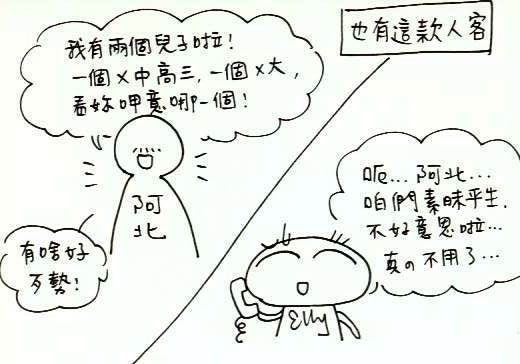 也有這款人客
我有兩個兒子啦！
一個X中高三，一個X大，
看妳呷意哪一個！
阿
北
有啥好
歹勢！
呃...阿北...
咱們素昧平生，
不好意思啦...
真の不用了...
Elly